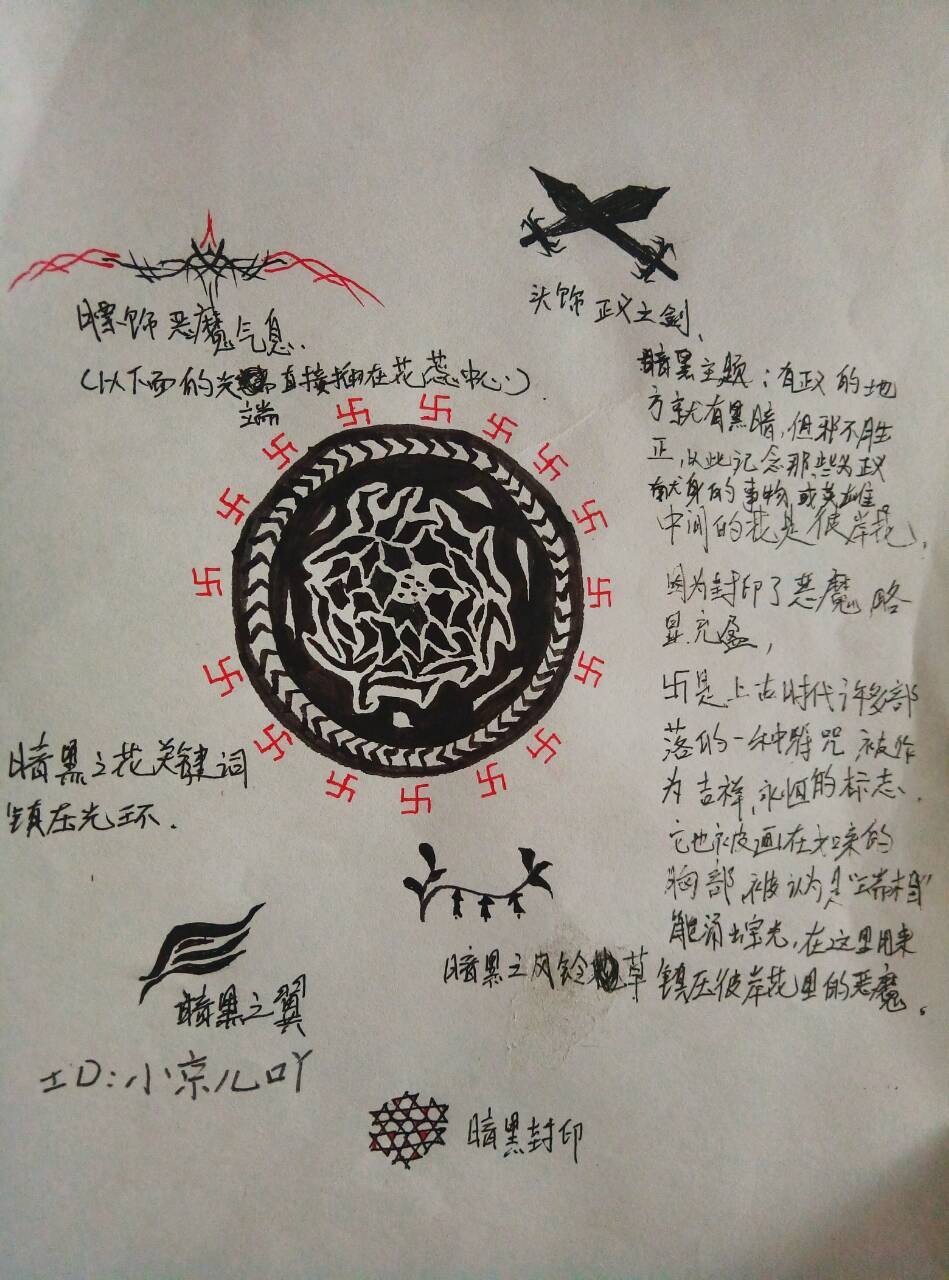 头饰 正义之剑、
飘饰 恶魔气息.
(以下面的尖端直接插在花蕊中心)
暗黑主题：有政的地
方就有黑暗，但邪不胜
正，以此记念那些为政
献身的事物或英雄
中间的花是彼岸花，
因为封印了恶魔 略
显充盈，
卐是上古时代许多部
落的一种符咒 被作
为吉祥，永恒的标志、
它也被画在如来的
胸部，被认为是“瑞相”
能涌出宝光，在这里用来
镇压彼岸花里的恶魔。
暗黑之花关键词
镇压光环.
暗黑之风铃草
暗黑之翼
ID:小京儿吖
暗黑封印